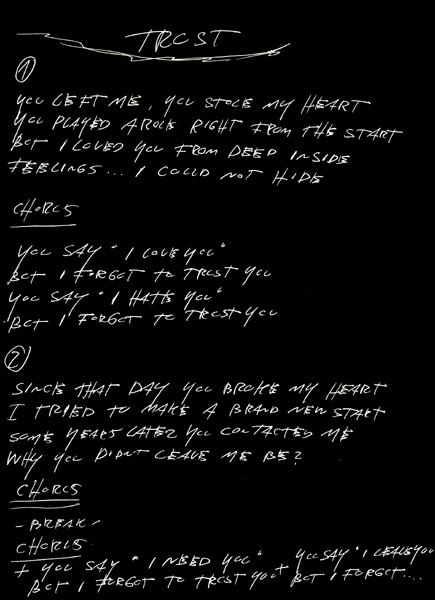 TRUST
1
YOU LEFT ME, YOU STOLE MY HEART
YOU PLAYED A ROLE RIGHT FROM THE START
BUT I LOVED YOU FROM DEED INSIDE
FEELINGS... I COULD NOT HIDE
CHORUS
YOU SAY "I LOVE YOU"
BUT I FORGOT TO TRUST YOU
YOU SAY "I HATE YOU"
BUT I FORGOT TO TRUST YOU
2
SINCE THAT DAY YOU BROKE MY HEART
I TRIED TO MAKE A BRAND NEW START
SOME YEARS LATER YOU CONTACTED ME
WHY YOU DIDNT LEAVE ME BE?
CHORUS
- BREAK -
CHORUS
+ YOU SAY "I NEED YOU" + YOU SAY "I LEAVE YOU
BUT I FORGOT TO TRUST YOU BUT I FORGOT....